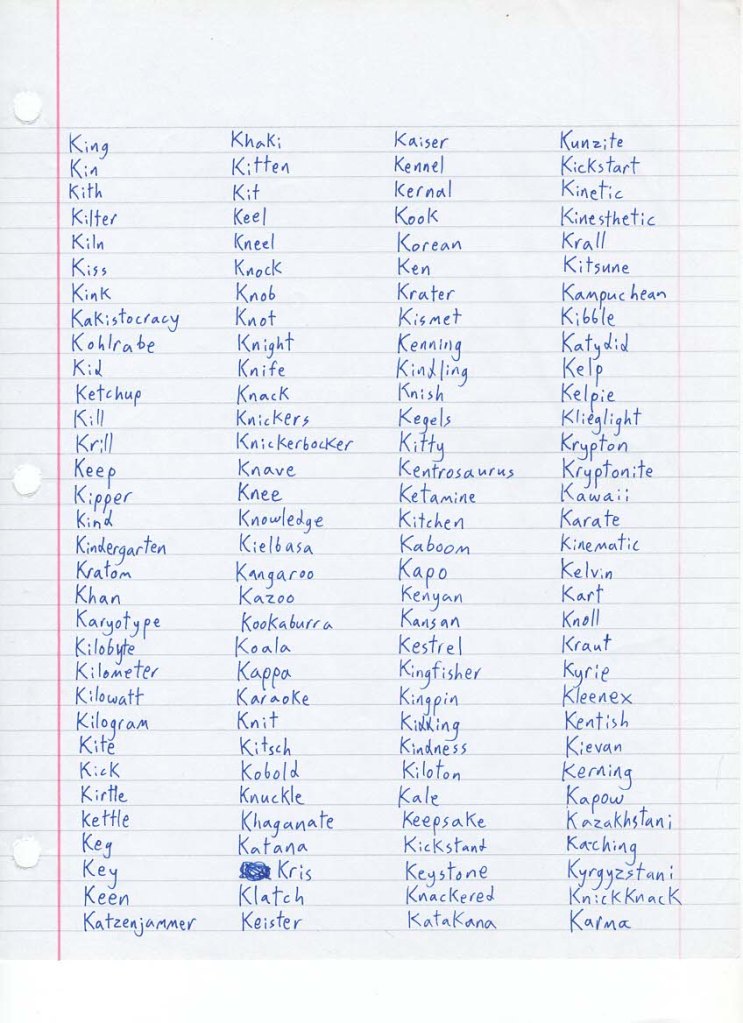 King Khaki Kaiser Kunzite
Kin Kitten Kennel Kickstart
Kith Kit Kernal Kinetic
Kilter Keel Kook Kinesthetic
Kiln Kneel Korean Krall
Kiss Knock Ken Kitsune
Kink Knob Krater Kampuchean
Kakistocracy Knot Kismet Kibble
Kohlrabe Knight Kenning Katydid
Kid Knife Kindling Kelp
Ketchup Knack Knish Kelpie
Kill Knickers Kegels Klieglight
Krill Knickerbocker Kitty Krypton
Keep Knave Kentrosaurus Kryptonite
Kipper Knee Ketamine Kawaii
Kind Knowledge Kitchen Karate
Kindergarten Kielbasa Kaboom Kinematic
Kratom Kangaroo Kapo Kelvin
Khan Kazoo Kenyan Kart
Karyotype Kookaburra Kansan Knoll
Kilobyte Koala Kestrel Kraut
Kilometer Kappa Kingfisher Kyrie
Kilowatt Karaoke Kingpin Kleenex
Kilogram Knit Kidding Kentish
Kite Kitsch Kindness Kievan
Kick Kobold Kiloton Kerning
Kirtle Knuckle Kale Kapow
Kettle Khaganate Keepsake Kazakhstani
Keg Katana Kickstand Kaching
Key Kris Keystone Kyrgyzstani
Keen Klatch Knackered KnickKnack
Katzenjammer Keister Katakana Karma